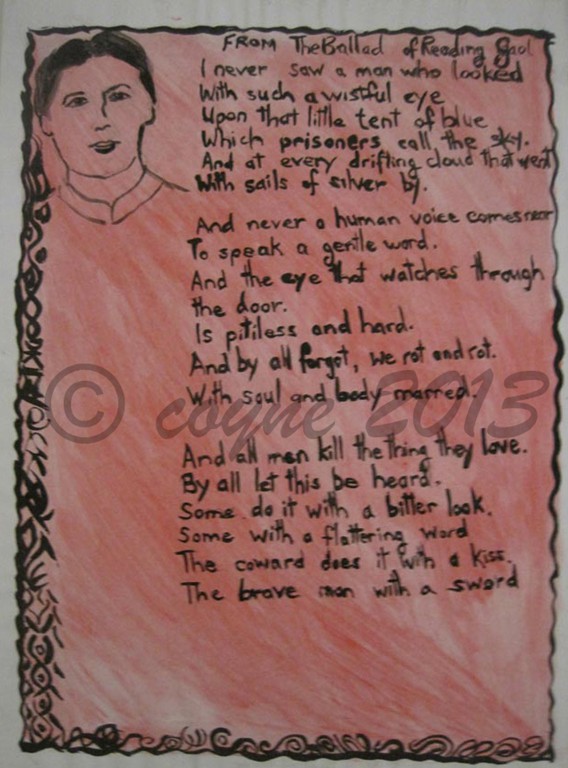 FROM The Ballad of Reading Gaol
I never saw a man who looked
With such a wistful eye
Upon that little tent of blue
Which prisoners call the sky.
And at every drifting cloud that went
With sails of silver by.
And never a human voice comes near
To speak a gentle word.
And the eye that watches through
the door.
Is pitiless and hard.
And by all forgot, we rot and rot.
With soul and body marred.
© coyne 2013
And all men kill the thing they love.
By all let this be heard.
Some do it with a bitter look.
Some with a flattering word
The coward does it with a kiss.
The brave man with a sword